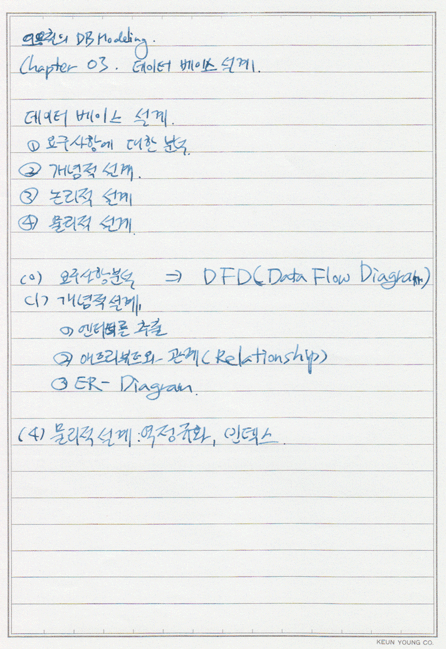 DB Modeling.
Chapter 03. 데이터 베이스 설계.
데이터 베이스 설계.
① 요구사항에 대한 분석
② 개념적 설계.
③ 논리적 설계
④ 물리적 설계.
(0) 요구사항분석 ⇒ DFD(Data Flow Diagram)
(1) 개념적설계,
① 엔터티를 추출
② 애트리뷰트와 관계(Relationship)
③ ER- Diagram.
(4) 물리적설계:역정규화, 인덱스.
KEUN YOUNG CO.